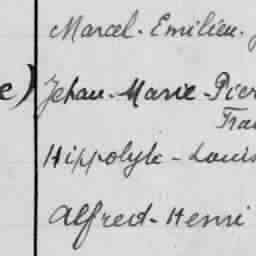 Marcel-Emilien-
e) Jehan-Marie-Pier
Fra
Hippolyte-Louis
Alfred-Henri